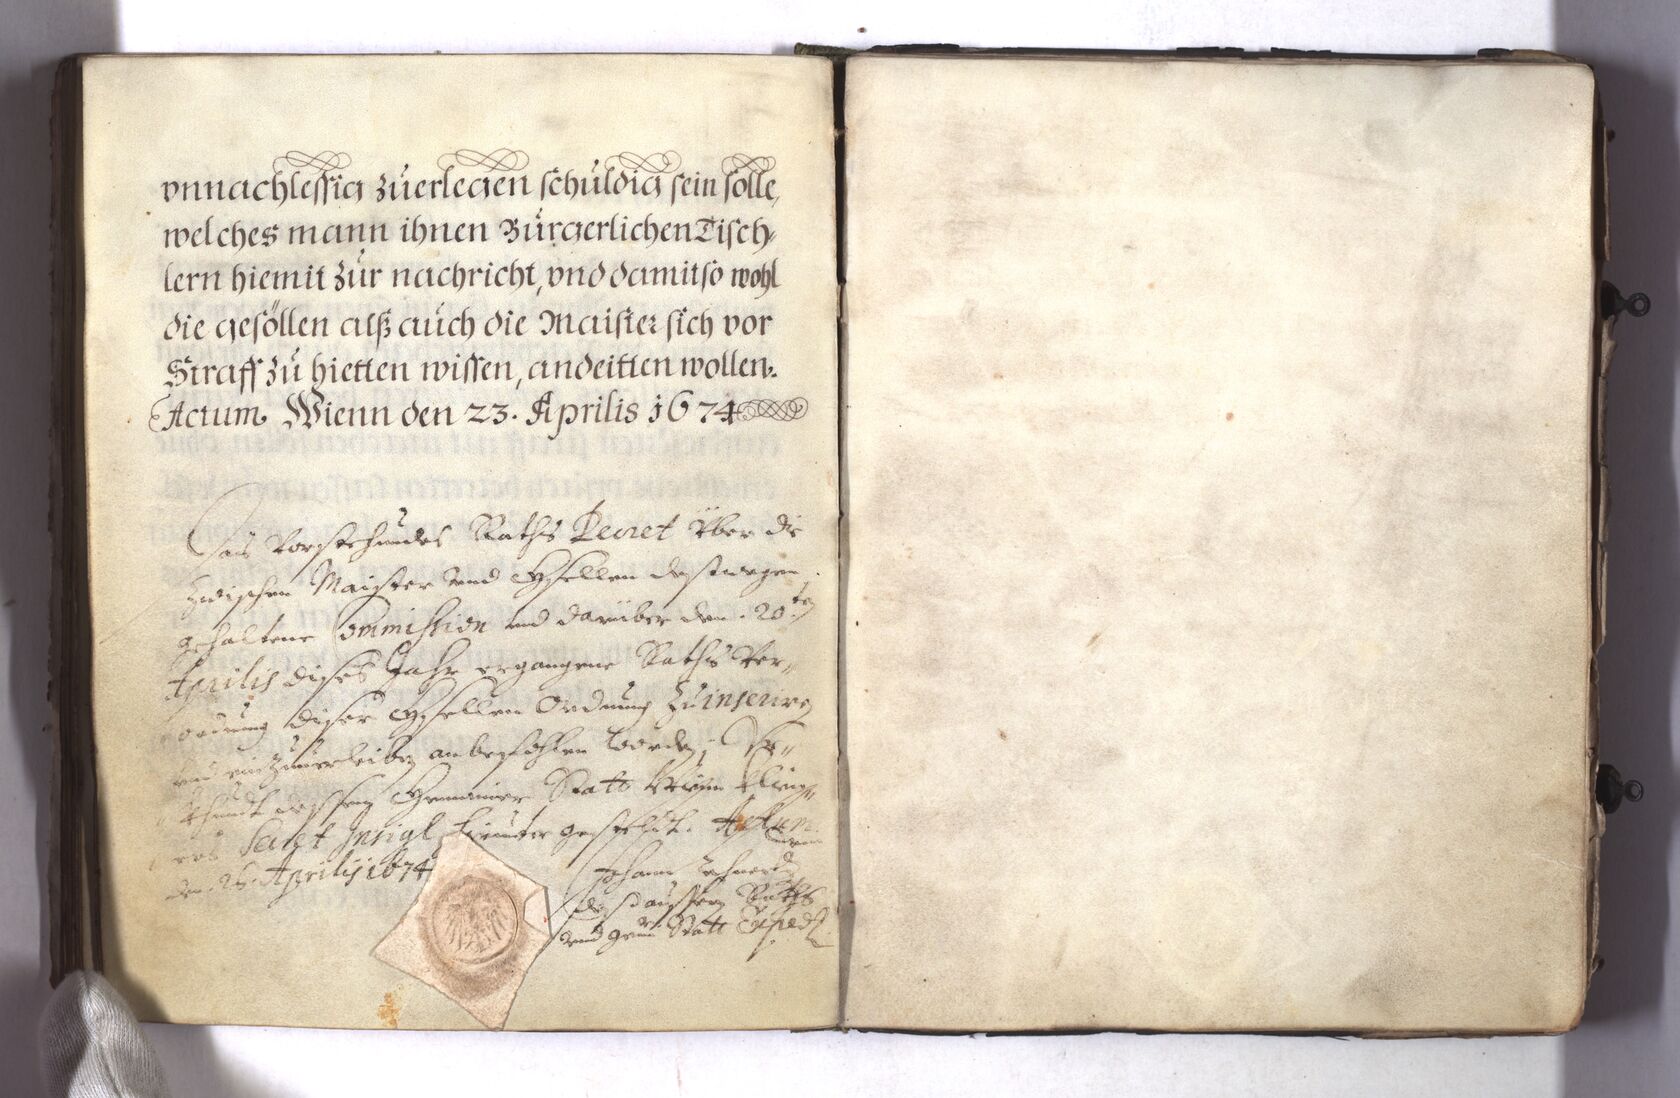 vnnachlessig zúerlegen schúldig sein solle,
welches mann ihnen Búrgerlichen Tisch-
lern hiemit zúr nachricht, vnd damit so wohl
die gesöllen alß aúch die Maister sich vor
Straff zú hietten wissen, andeitten wollen.
Actum Wienn den 23. Aprilis 1674
vorstehendes Raths Decret über die
zwischen Maister vnd Gsellen desstwegen
gehaltene Commission vnd darüber den 20ten
Aprilis dises Jahr ergangene Raths Ver-
ordnung diser Gsellen Ordnung zú inseriren
vnd einzúuerleiben anbefohlen worden; 
Statt Wienn
Secret Insigl hierunter gestelt. Actum
den 26. Aprilis 1674
Johann
dess aussern Raths
vnd gemr Statt Expedr